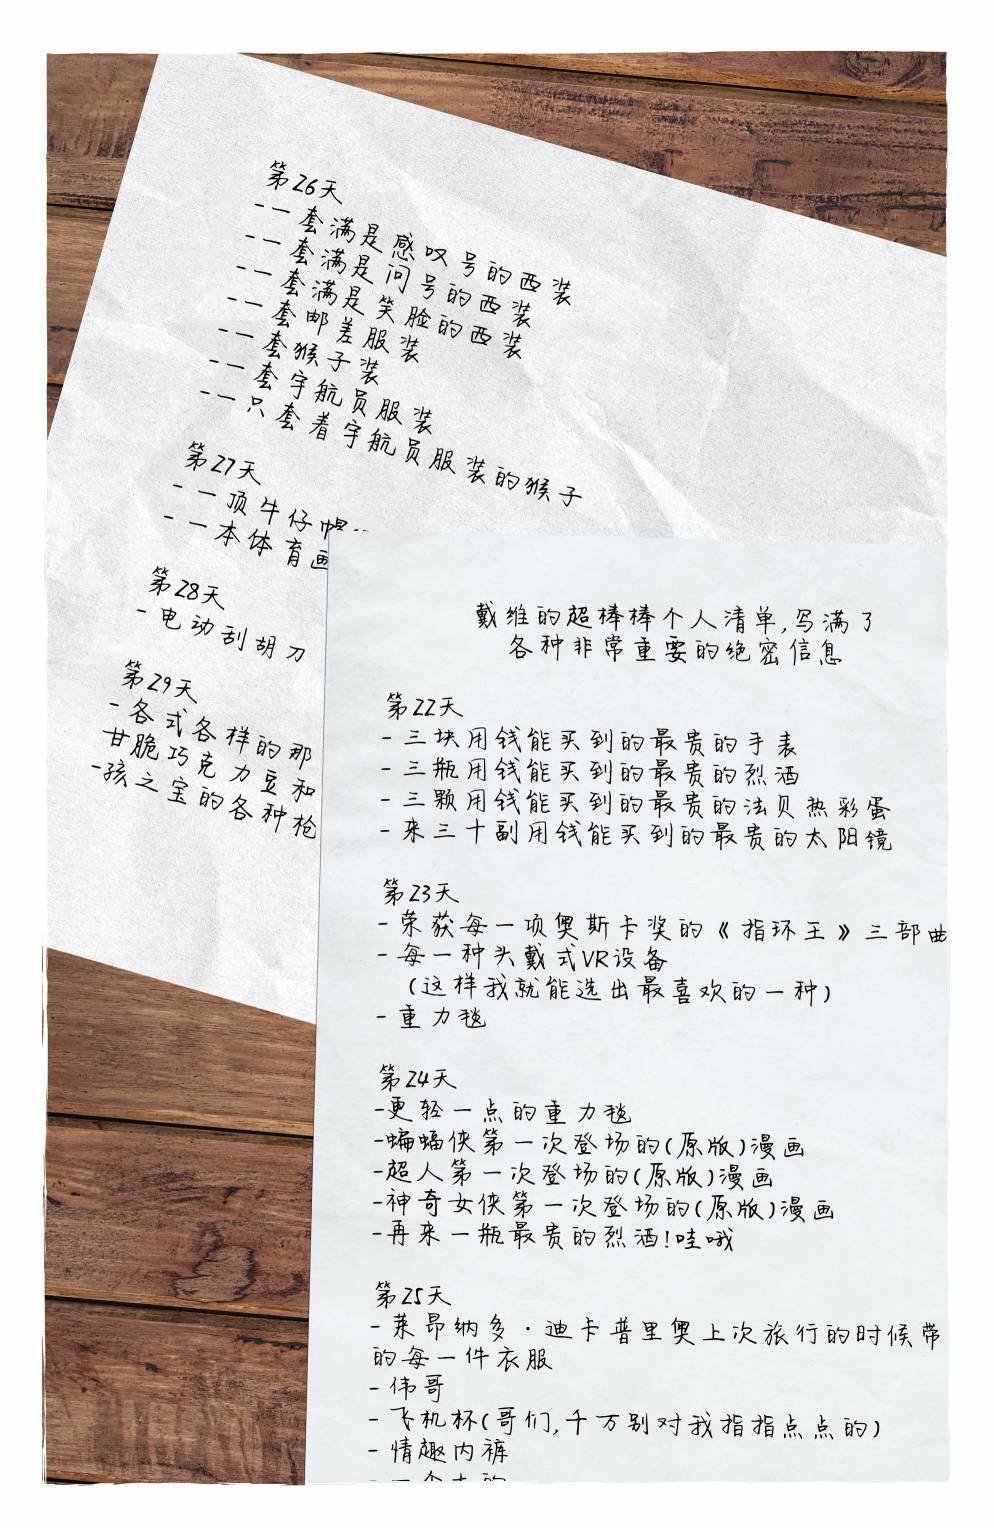 第26天
-一套满是感叹号的西装
-一套满是问号的西装
-一套满是笑脸的西装
-一套邮差服装
-一套猴子装
-一套宇航员服装
-一只套着宇航员服装的猴子
第27天
-一顶牛仔帽
-一本体育画
第28天
-电动刮胡刀
第29天
-各式各样的那
甘脆巧克力豆和
-孩之宝的各种枪
戴维的超棒棒个人清单,写满了
各种非常重要的绝密信息
第22天
-三块用钱能买到的最贵的手表
-三瓶用钱能买到的最贵的烈酒
-三颗用钱能买到的最贵的法贝热彩蛋
-来三十副用钱能买到的最贵的太阳镜
第23天
-荣获每一项奥斯卡奖的《指环王》三部曲
-每一种头戴式VR设备
(这样我就能选出最喜欢的一种)
-重力毯
第24天
-更轻一点的重力毯
-蝙蝠侠第一次登场的(原版)漫画
-超人第一次登场的(原版)漫画
-神奇女侠第一次登场的(原版)漫画
-再来一瓶最贵的烈酒!哇哦
第25天
-莱昂纳多·迪卡普里奥上次旅行的时候带
的每一件衣服
-伟哥
-飞机杯(哥们,千万别对我指指点点的)
-情趣内裤